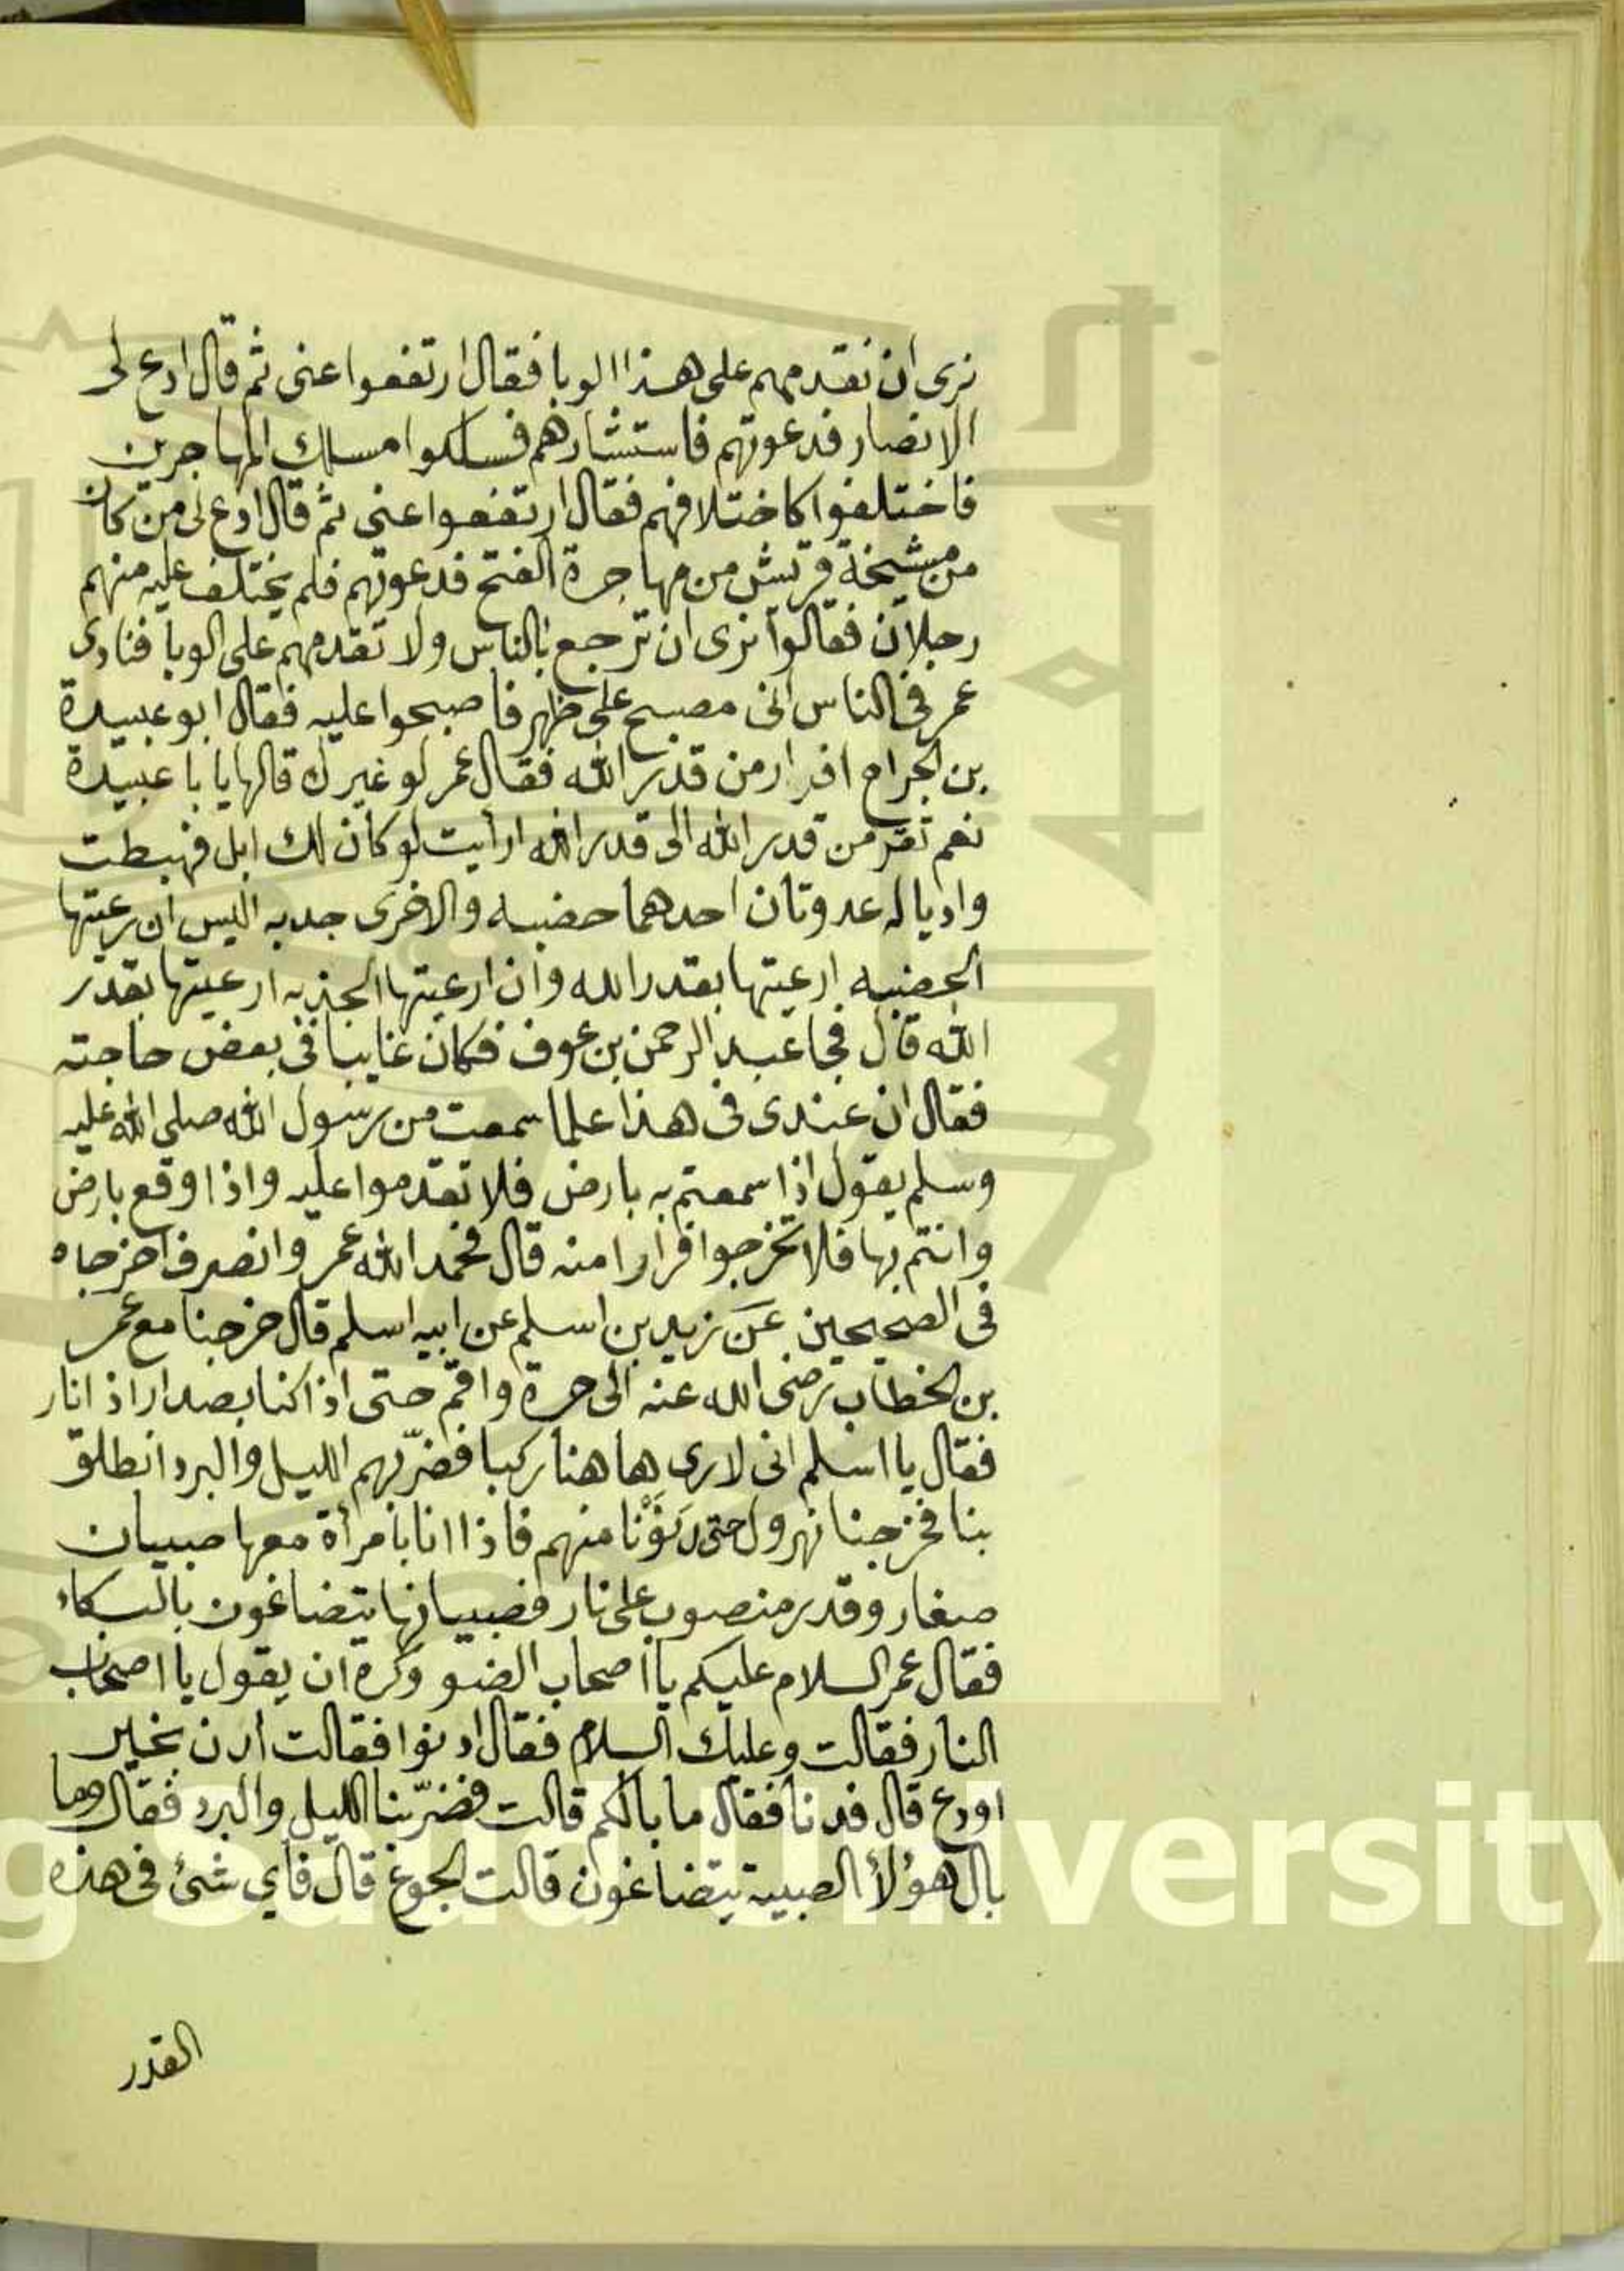 نرى ان نقدمهم على هذا الوبا فقال ارتفعوا عنى ثم قال ادع لى
الانصار فدعوتهم فاستشارهم فسلكوا مسلك المهاجرين
فاختلفوا كاختلافهم فقال ارتفعوا عنى ثم قال ادع لى من كان
من مشيخة قريش من مهاجرة الفتح فدعوتهم فلم يختلف عليه منهم
رجلان فقالوا نرى ان ترجع بالناس ولا تقدمهم على الوبا فنادى
عمر فى الناس انى مصبح على ظهر فاصبحوا عليه فقال ابو عبيدة
بن الجراح افرار من قدر الله فقال عمر لو غيرك قالها يا با عبيدة
نعم نفر من قدر الله الى قدر الله ارأيت لو كان لك ابل فهبطت
واديا له عدوتان احدهما خضبه والاخرى جدبه اليس ان رعيتها
الخضبه ارعيتها بقدر الله وان ارعيتها الجدبه ارعيتها بقدر
الله قال فجا عبد الرحمن بن عوف فكان غايبا فى بعض حاجته
فقال ان عندى فى هذا علما سمعت من رسول الله صلى الله عليه
وسلم يقول اذا سمعتم به بارض فلا تقدموا عليه واذا وقع بارض
وانتم بها فلا تخرجوا فرارا منه قال فحمد الله عمر وانصرف اخرجاه
فى الصحيحين عَن زيد بن اسلم عن ابيه اسلم قال خرجنا مع عمر
بن الخطاب رضى الله عنه الى حرة واقم حتى اذا كنا بصدار اذا نار
فقال يا اسلم انى لارى هاهنا ركبا فضرّبهم الليل والبرد انطلق
بنا فخرجنا نهرول حتى دَنَوْنا منهم فاذا انا بامرأة معها صبيان
صغار وقدر منصوب على نار فصبيانها يتضاغون بالبكاء
فقال عمر السلام عليكم يا اصحاب الضو وكره ان يقول يا اصحاب
النار فقالت وعليك السلام فقال ادنوا فقالت ادن بخير
اودع قال فدنا فقال ما بالكم قالت فضرّبنا الليل والبرد فقال وما
بال هؤلأ الصبية يتضاغون قالت الجوع قال فأي شئ فى هذه
القدر
King Saud University